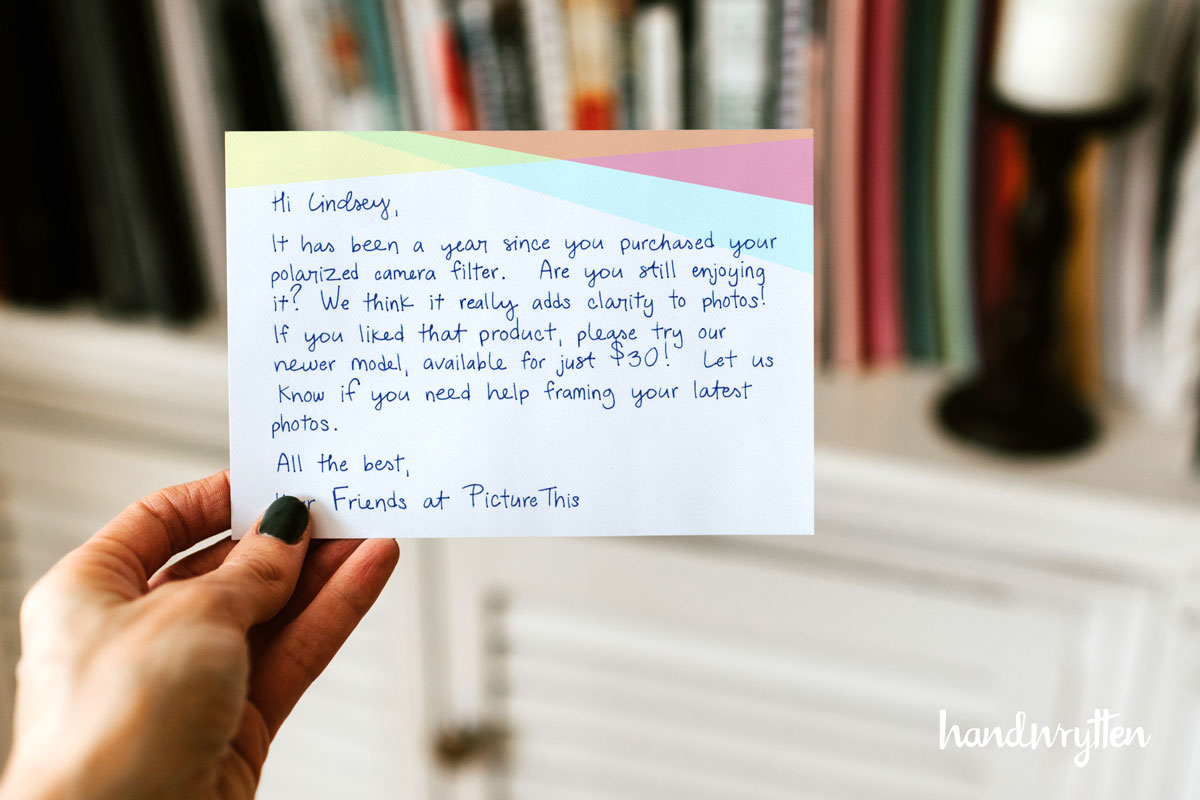 Hi Lindsey,
It has been a year since you purchased your
polarized camera filter. Are you still enjoying
it? We think it really adds clarity to photos!
If you liked that product, please try our
newer model, available for just $30! Let us
know if you need help framing your latest
photos.
All the best,
Friends at PictureThis
handwrytten